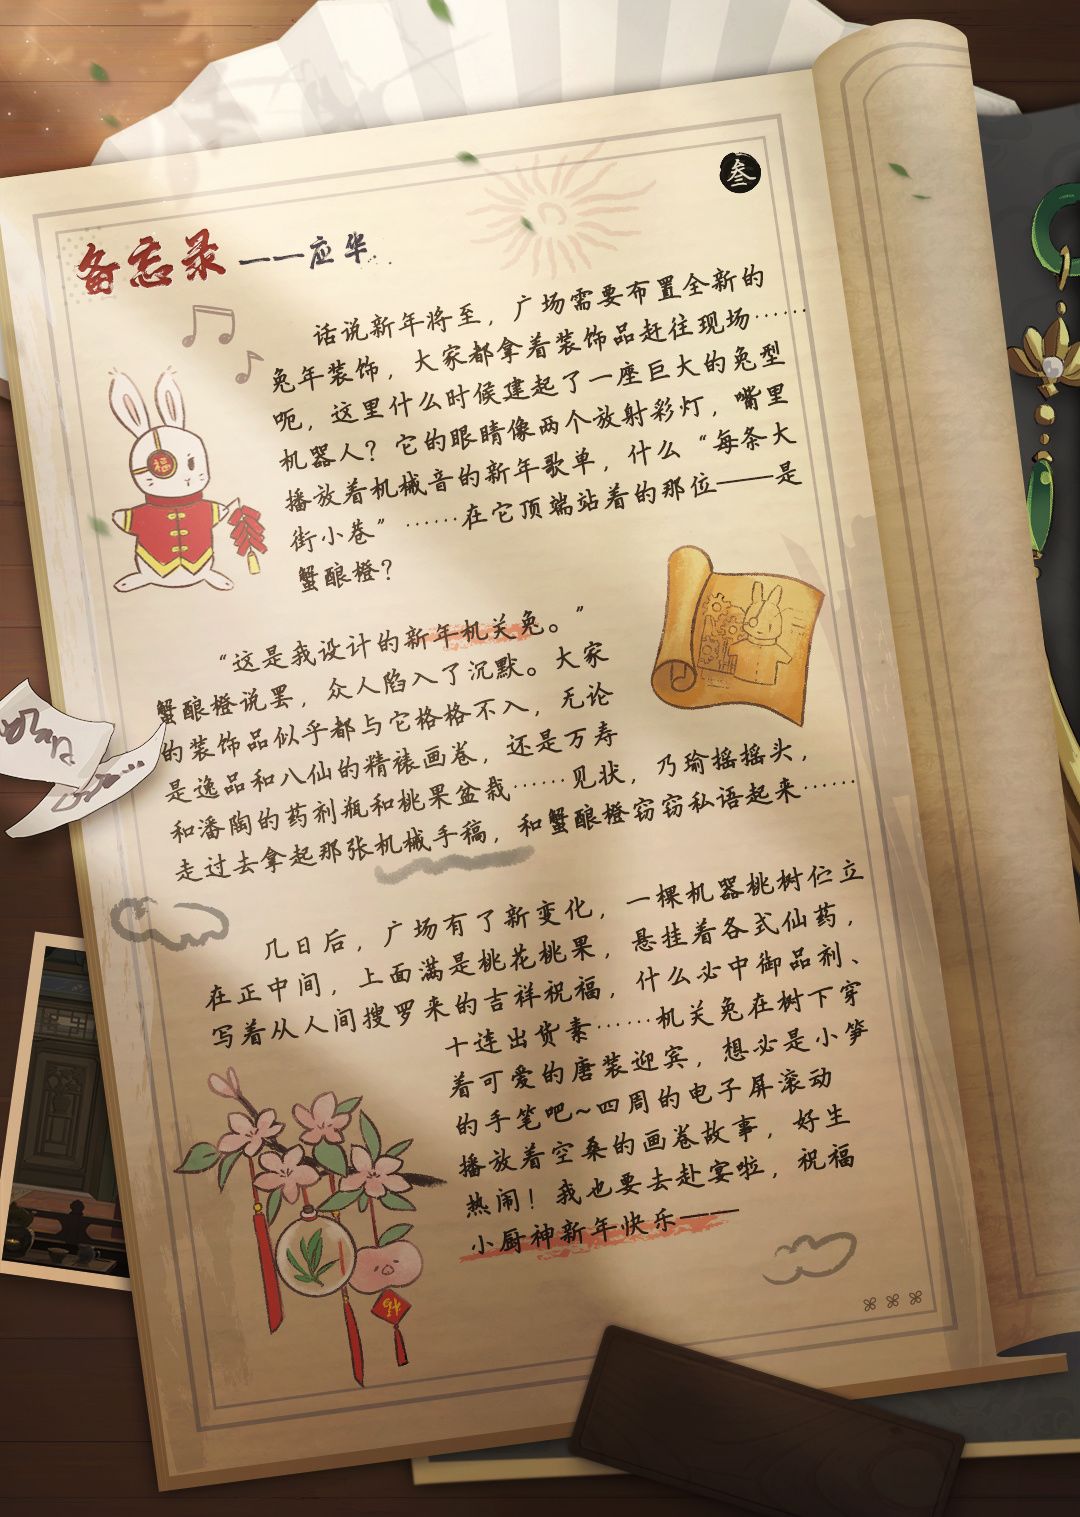 叁
备忘录——应华
话说新年将至，广场需要布置全新的
兔年装饰，大家都拿着装饰品赶往现场……
呃，这里什么时候建起了一座巨大的兔型
机器人？它的眼睛像两个放射彩灯，嘴里
播放着机械音的新年歌单，什么“每条大
街小巷”……在它顶端站着的那位——是
蟹酿橙？
福
“这是我设计的新年机关兔。”
蟹酿橙说罢，众人陷入了沉默。大家
的装饰品似乎都与它格格不入，无论
是逸品和八仙的精裱画卷，还是万寿
和潘陶的药剂瓶和桃果盆栽……见状，乃瑜摇摇头，
走过去拿起那张机械手稿，和蟹酿橙窃窃私语起来……
几日后，广场有了新变化，一棵机器桃树伫立
在正中间，上面满是桃花桃果，悬挂着各式仙药，
写着从人间搜罗来的吉祥祝福，什么必中御品剂、
十连出货素……机关兔在树下穿
着可爱的唐装迎宾，想必是小笋
的手笔吧~四周的电子屏滚动
播放着空桑的画卷故事，好生
热闹！我也要去赴宴啦，祝福
小厨神新年快乐——